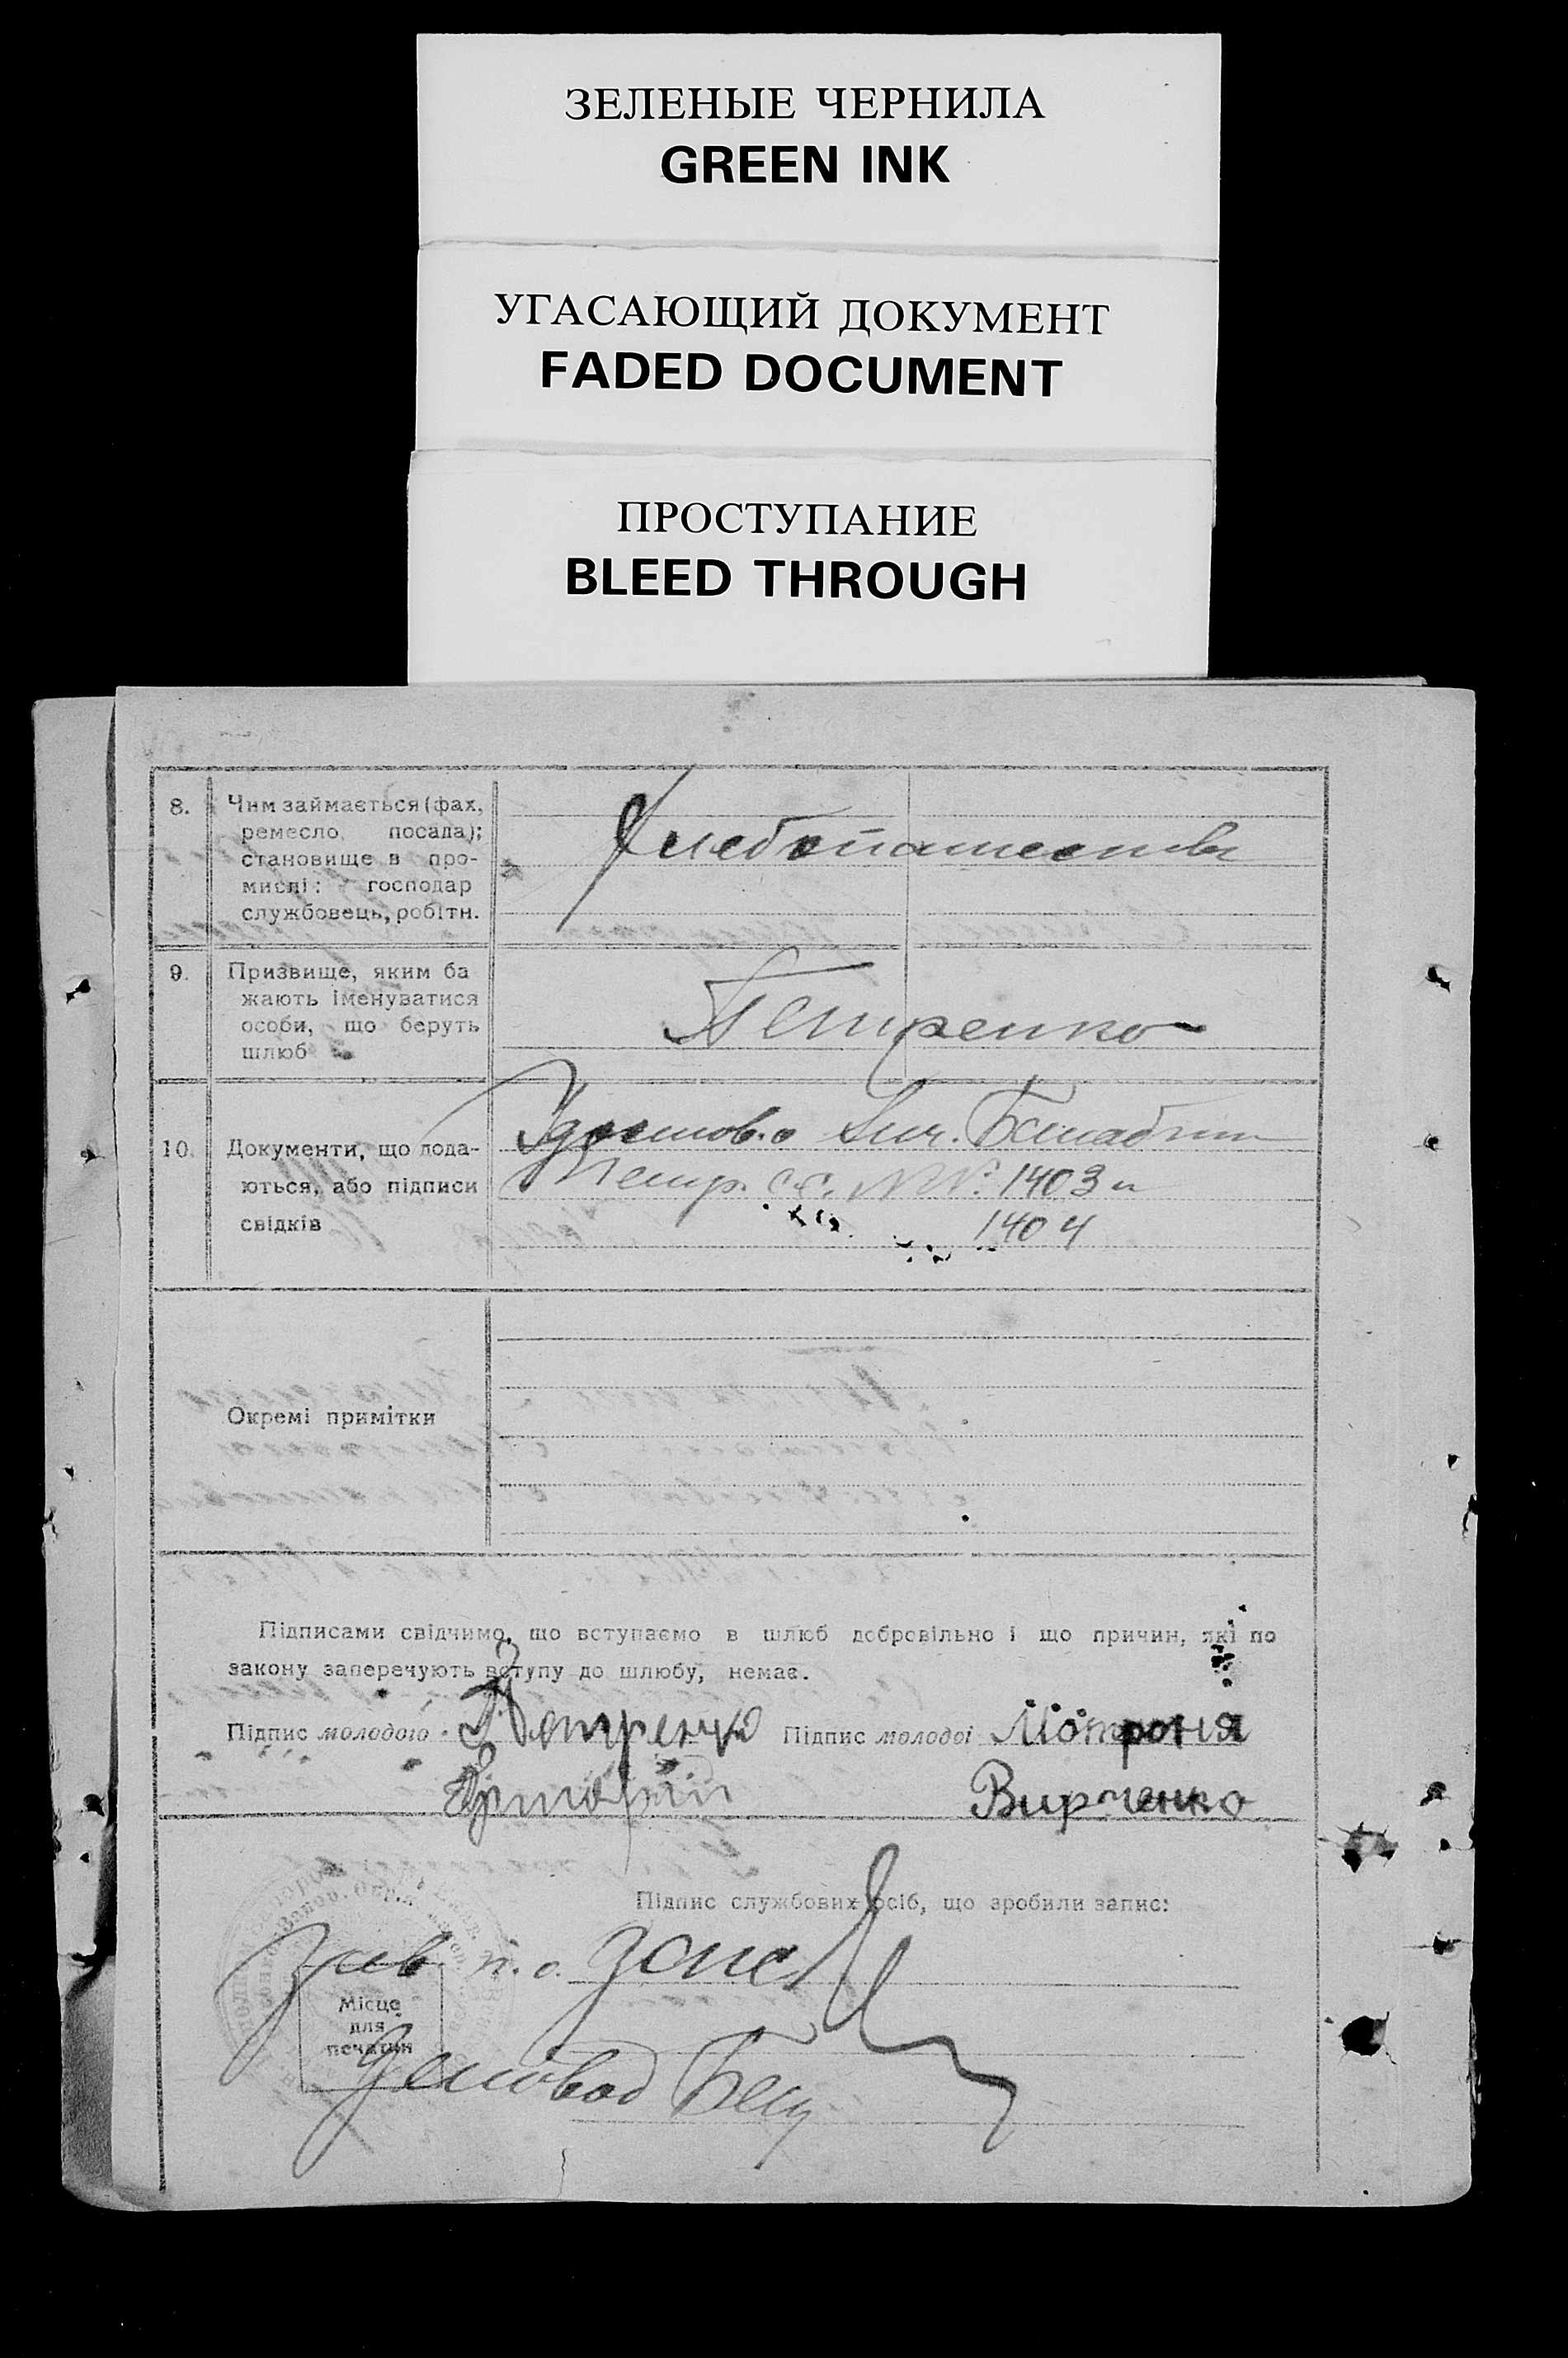 ЗЕЛЕНЫЕ ЧЕРНИЛА
GREEN INK
УГАСАЮЩИЙ ДОКУМЕНТ
FADED DOCUMENT
ПРОСТУПАНИЕ
BLEED THROUGH
8. Чим займається (фах,
ремесло, посада);
становище в про-
мислі: господар
службовець, робітн.
9. Призвище, яким ба
жають іменуватися
особи, що беруть
шлюб
Петренко
10. Документи, що пода-
ються, або підписи
свідків
Петр. с.с. №№ 1403 и
1404
Окремі примітки
Підписами свідчимо, що вступаємо в шлюб добровільно і що причин, які по
закону заперечують вступу до шлюбу, немає.
Підпис молодого Петренко Підпис молодої Мотроня
Вирченко
Підпис службових осіб, що зробили запис:
Зав. п. о.
Місце
для
печатки